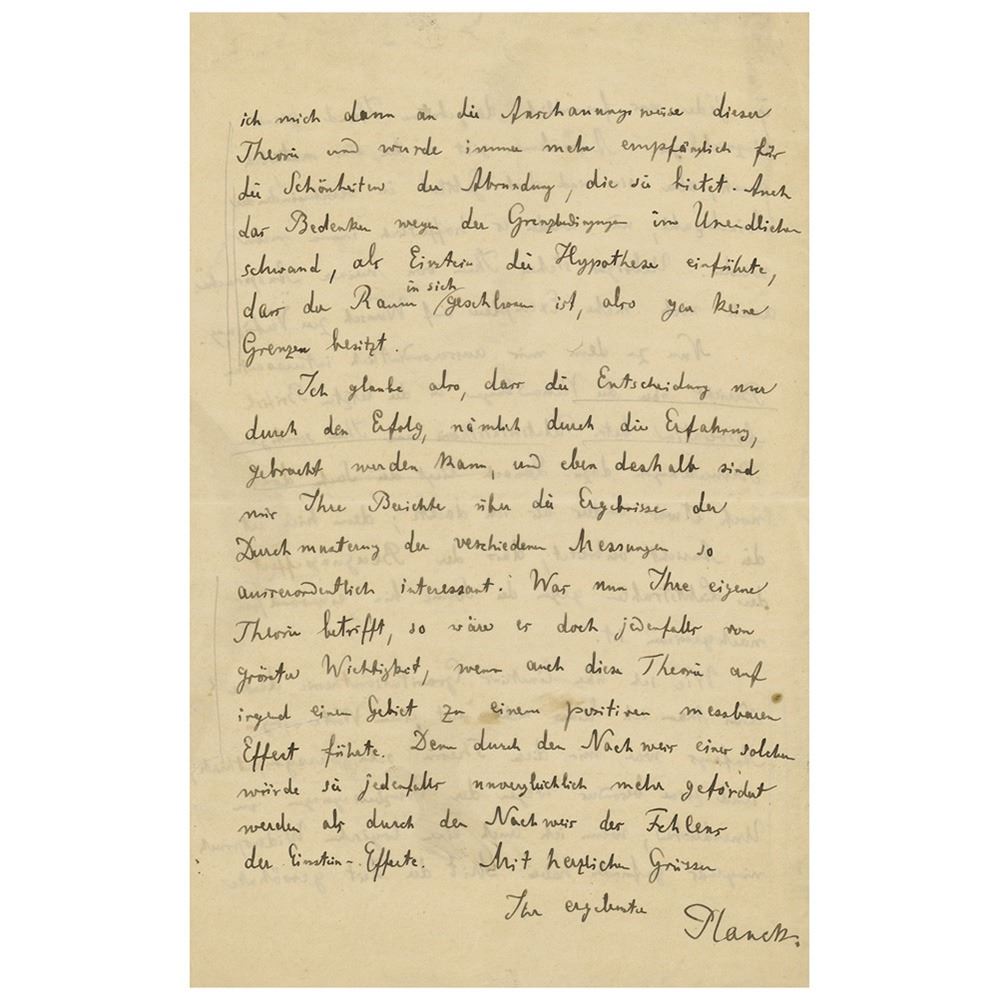 ich mich dann an die Anschauungsweise dieser
Theorie und wurde immer mehr empfänglich für
die Schönheiten der Abrundung, die sie bietet. Auch
das Bedenken wegen der Grenzbedingungen im Unendlichen
schwand, als Einstein die Hypothese einführte,
dass der Raum in sich geschlossen ist, also gar keine
Grenzen besitzt.
Ich glaube also, dass die Entscheidung nur
durch den Erfolg, nämlich durch die Erfahrung,
gebracht werden kann, und eben deshalb sind
mir Ihre Berichte über die Ergebnisse der
Durchmusterung der verschiedenen Messungen so
ausserordentlich interessant. Was nun Ihre eigene
Theorie betrifft, so wäre es doch jedenfalls von
grösster Wichtigkeit, wenn auch diese Theorie auf
irgend einem Gebiet zu einem positiven messbaren
Effekt führte. Denn durch den Nachweis eines solchen
würde sie jedenfalls unvergleichlich mehr gefördert
werden als durch den Nachweis des Fehlens
der Einstein-Effekte. Mit herzlichen Grüssen
Ihr ergebenster
Planck.